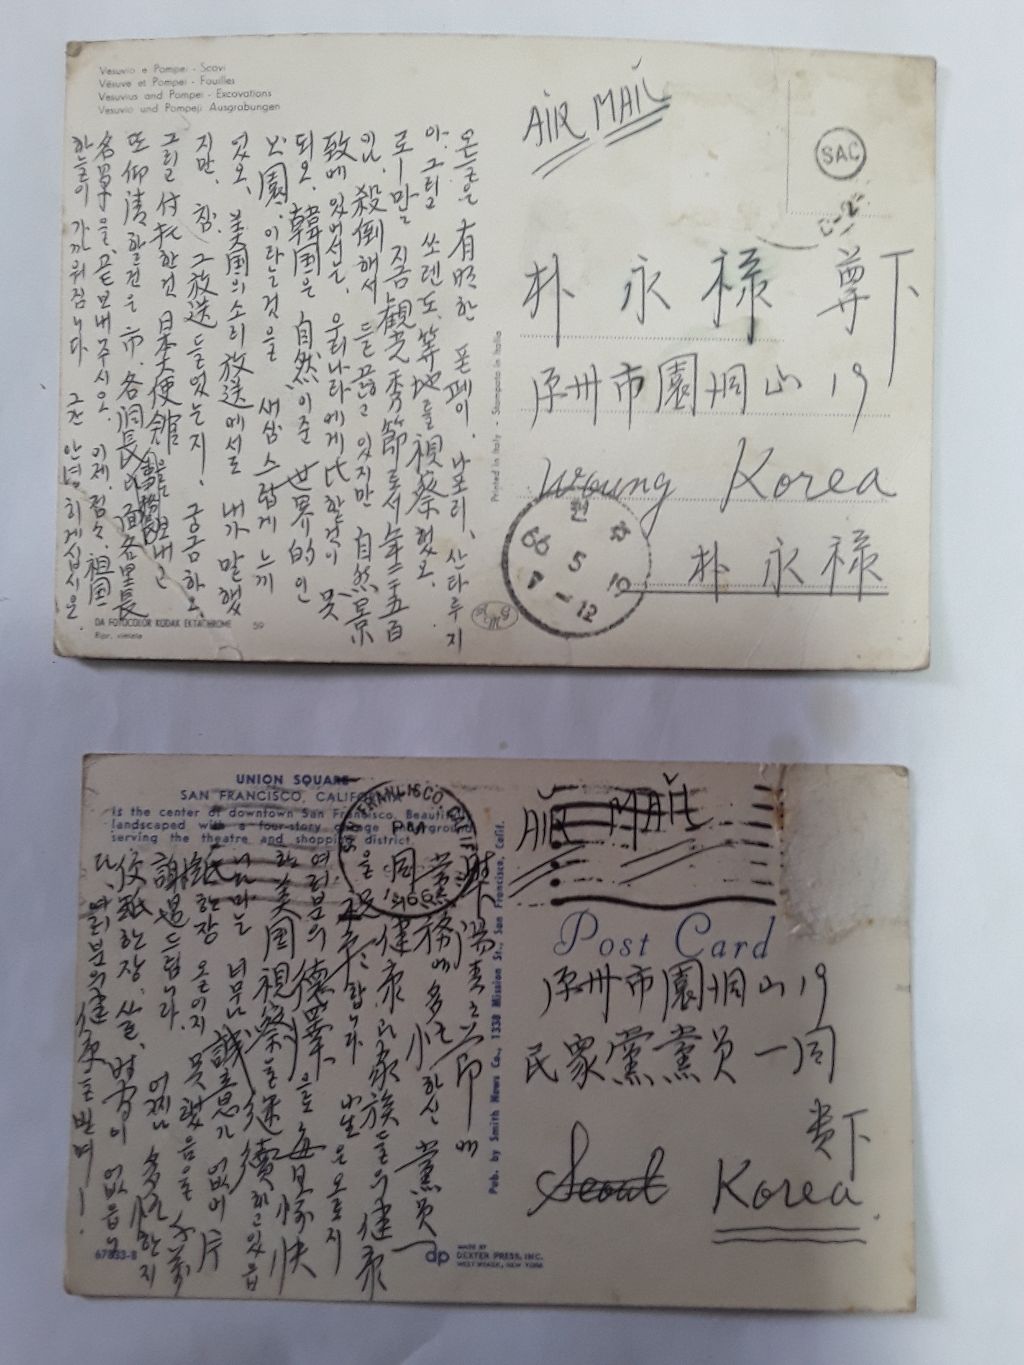 Vesuvio e Pompei - Scavi
Vésuve et Pompei - Fouilles
Vesuvius and Pompei - Excavations
Vesuvio und Pompeji Ausgrabungen
AIR MAIL
SAC
朴 永 禄 尊下
原州市園洞山 19
Korea
朴 永 禄
원주
66. 5. 10
- 12
Printed in Italy - Stampato in Italia
오늘은 有明한 폼페이, 나포리, 산타루치
아, 그리고 쏘렌토, 等地를 視察했오.
로ー마는 지금 觀光季節로서 年二千五百
殺倒해서 들끓고 있지만 自然景
致에 있어선, 우리나라에게 比할것이 못
되오. 韓国은 自然이 준 世界的인
公園, 이라는것을 새삼스럽게 느끼
었오, 美国의소리放送에서도 내가 말했
지만, 참, 그放送 들었는지! 궁금하오.
그리고 付托한건 日本大使館 보내고
또 仰請할건은 市, 各洞長 面各里長
名單을, 꼭보내주시오. 이제, 점점, 祖国
한늘이 가까워집니다 그간 안녕히게십시오.
DA FOTOCOLOR KODAK EKTACHROME 59
Ripr. vietata
UNION SQUARE
SAN FRANCISCO, CALIFORNIA
Is the center of downtown San Francisco. Beautifully
landscaped with a four-story garage underground
serving the theatre and shopping district.
SAN FRANCISCO, CALIF.
PM
1966
AIR MAIL
Post Card
原州市園洞山 19
民衆黨黨员 一同
貴下
Seoul Korea
Pub. by Smith News Co., 1330 Mission St., San Francisco, Calif.
黨務에 多忙하신 黨員一
同 健康과 家族들의 健康
을 합니다 小生은 오로지
여러분의 德澤으로 每日 愉快
한 美国視察을 継續하고 있읍
니다만 너무나 誠意가 없어 片
紙한장 오는이 못했음을
謝過드립니다. 어찌나 多忙한지
便紙한장, 쓸, 時間이 없읍니
다, 여러분의健康을빌며ー.
67833-B
dp
MADE BY
DEXTER PRESS, INC.
WEST NYACK, NEW YORK